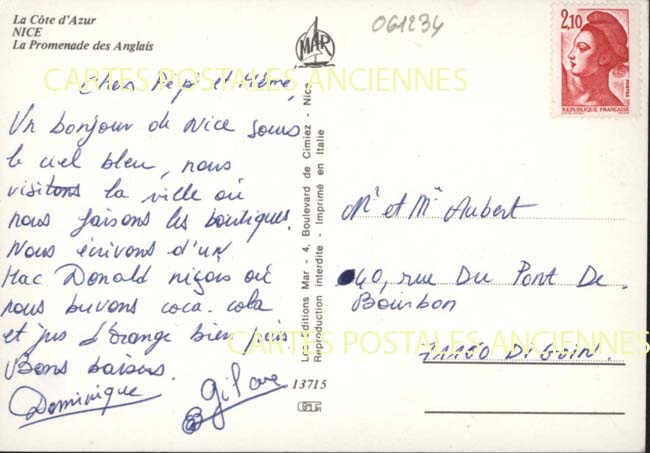 La Côte d'Azur
NICE
La Promenade des Anglais
MAR
061234
2,10
POSTES
REPUBLIQUE FRANÇAISE
CARTES POSTALES ANCIENNES
Cher Pépé et Mémé,
Un bonjour de Nice sous
le ciel bleu, nous
visitons la ville où
nous faisons les boutiques.
Nous écrivons d'un
Mac Donald niçois où
nous buvons coca-cola
et jus d'Orange bien frais
Bons baisers.
Dominique
Les éditions Mar - 4, Boulevard de Cimiez - Nice
Reproduction interdite - Imprimé en Italie
13715
Mr et Me Aubert
40, rue Du Pont De
Bourbon
71160 DIGOIN.
CARTES POSTALES ANCIENNES